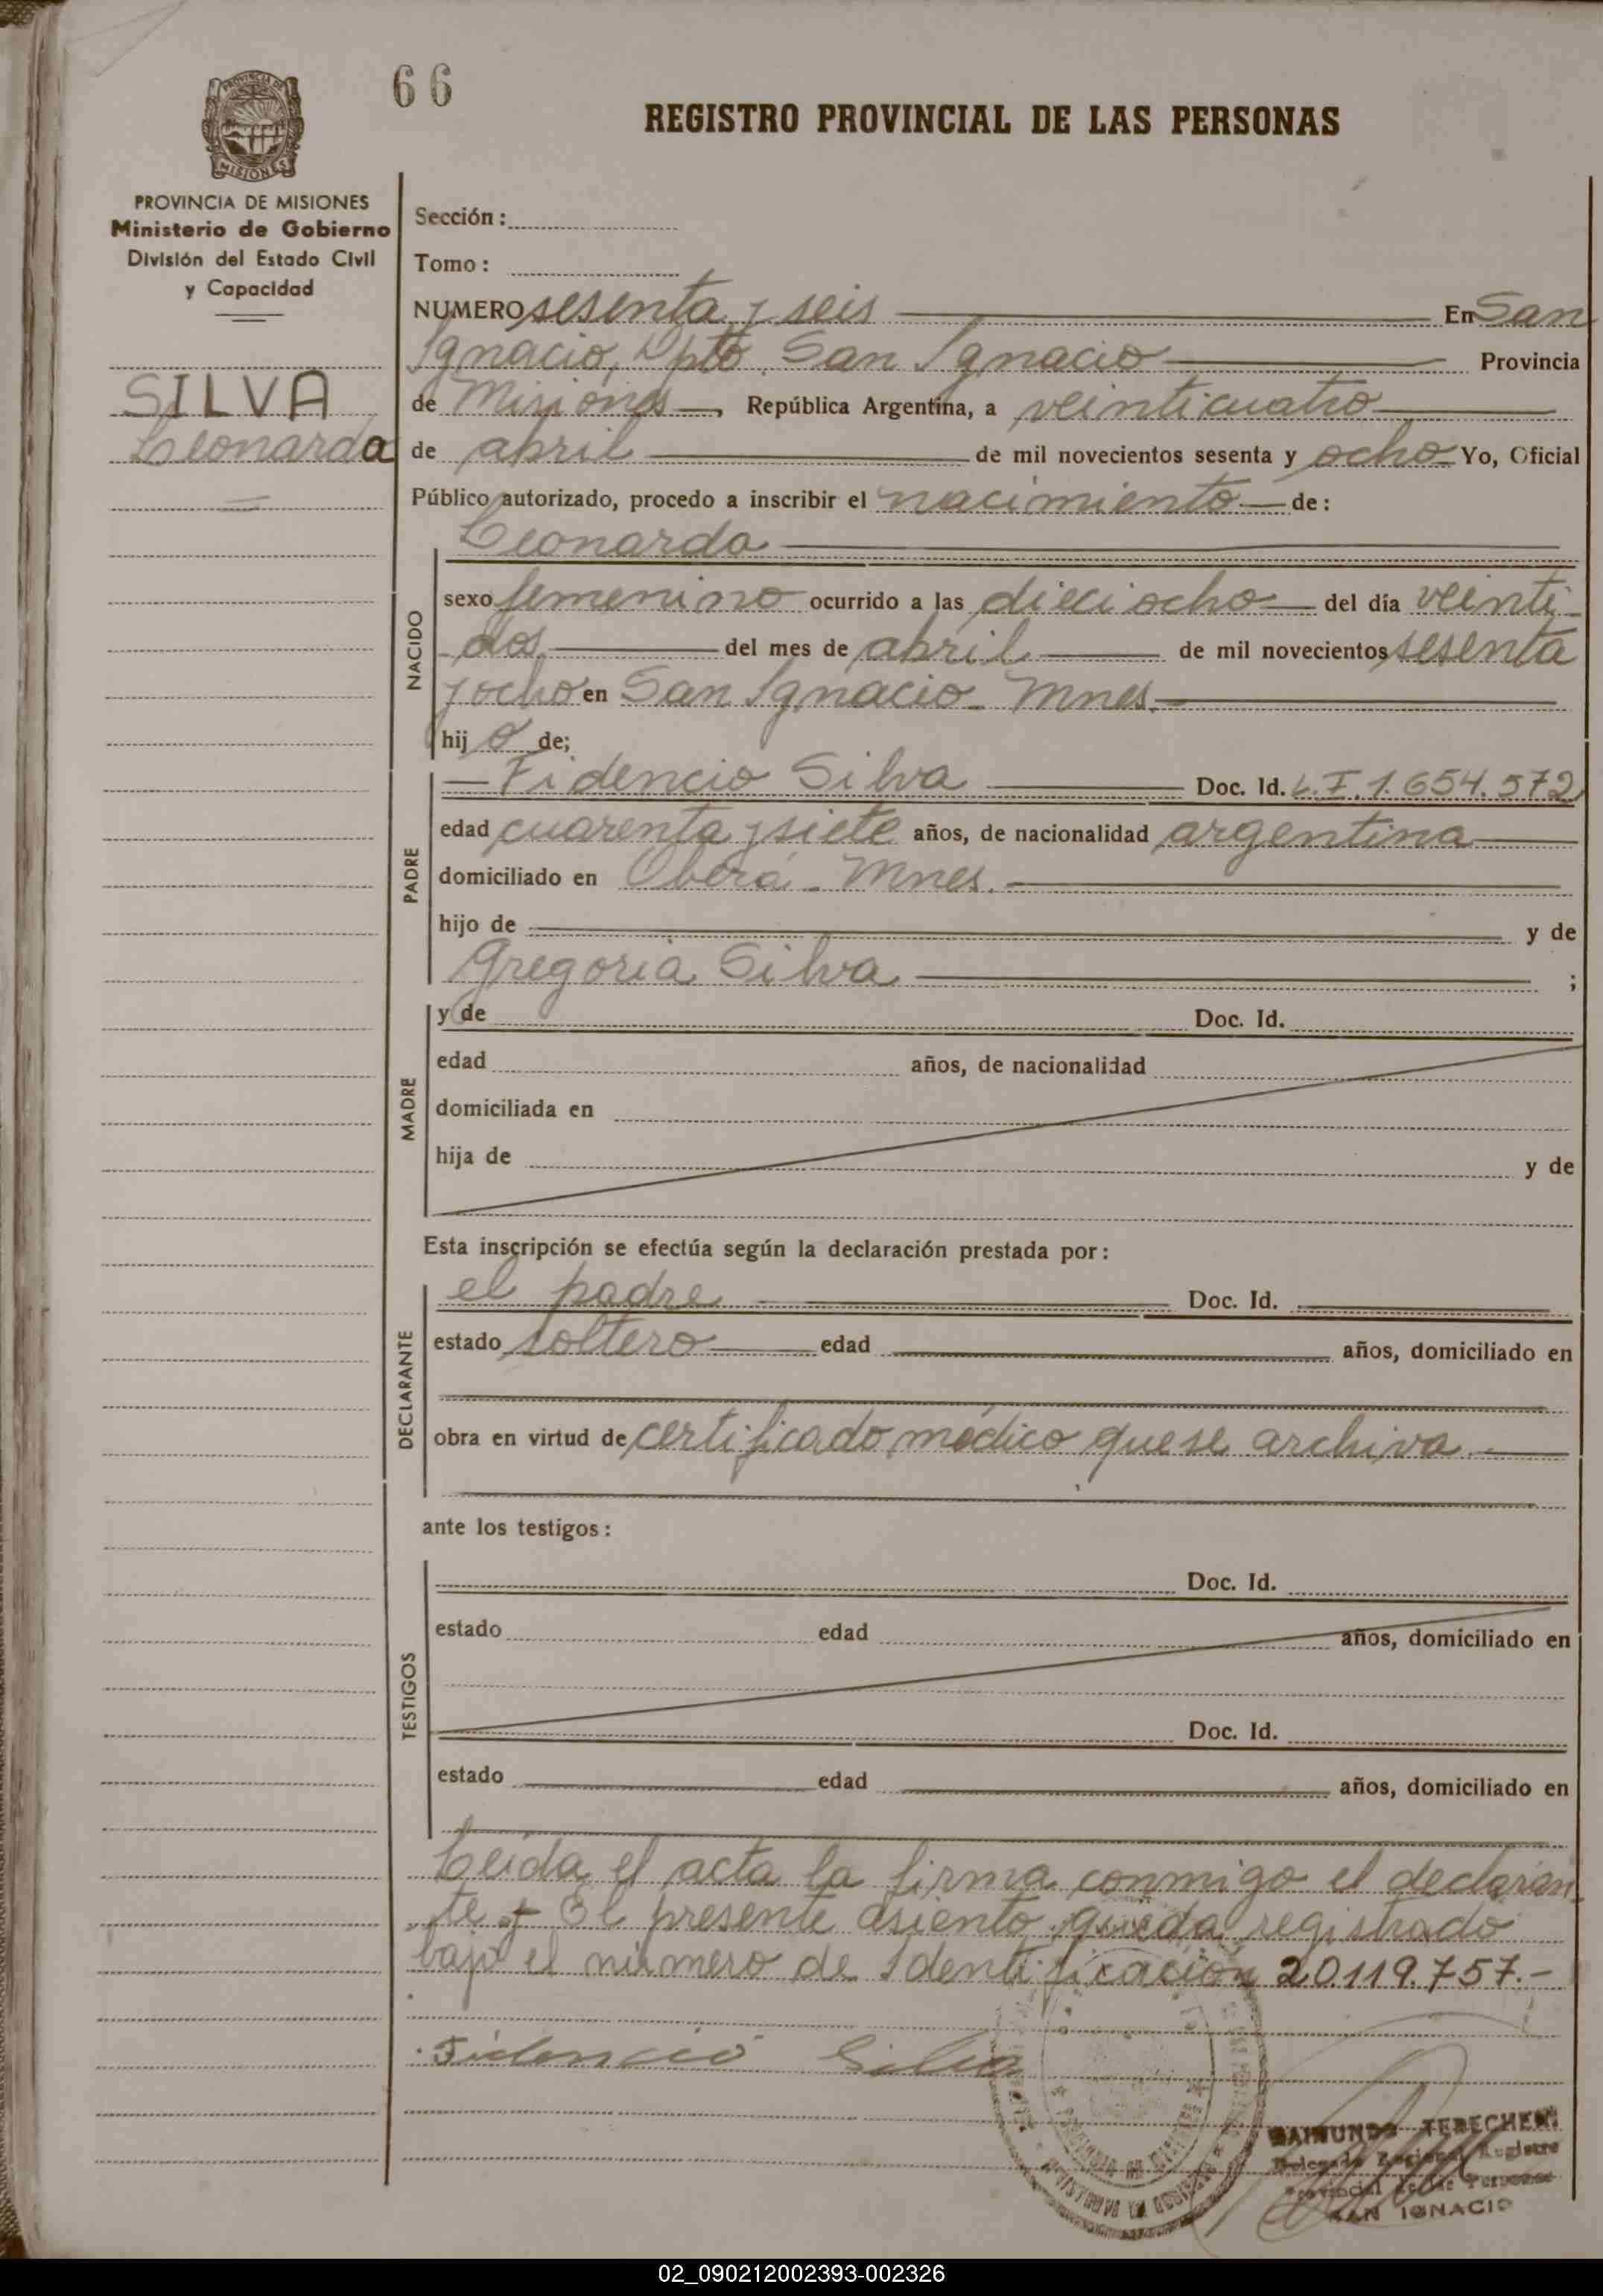 66
REGISTRO PROVINCIAL DE LAS PERSONAS
MISIONES
PROVINCIA DE MISIONES
Ministerio de Gobierno
División del Estado Civil
y Capacidad
SILVA
Leonarda
Sección:
Tomo:
NUMERO sesenta y seis En San
Ignacio, Dpto. San Ignacio Provincia
de Misiones, República Argentina, a veinticuatro
de abril de mil novecientos sesenta y ocho Yo, Oficial
Público autorizado, procedo a inscribir el nacimiento de:
Leonarda
NACIDO
sexo femenino ocurrido a las dieciocho del día veinti-
dos del mes de abril de mil novecientos sesenta
y ocho en San Ignacio - Mnes.
hij a de;
PADRE
Fidencio Silva Doc. Id. L.I. 1.654.572
edad cuarenta y siete años, de nacionalidad argentina
domiciliado en Oberá - Mnes.
hijo de y de
Gregoria Silva ;
MADRE
y de Doc. Id.
edad años, de nacionalidad
domiciliada en
hija de y de
Esta inscripción se efectúa según la declaración prestada por:
DECLARANTE
el padre Doc. Id.
estado soltero edad años, domiciliado en
obra en virtud de certificado médico que se archiva.
ante los testigos:
TESTIGOS
Doc. Id.
estado edad años, domiciliado en
Doc. Id.
estado edad años, domiciliado en
Leída el acta la firma conmigo el declaran-
te + El presente asiento queda registrado
bajo el número de Identificación 20.119.757.-
Fidencio Silva
RAIMUNDO
Delegado Regional Registro
Provincial de las Personas
SAN IGNACIO
02_090212002393-002326